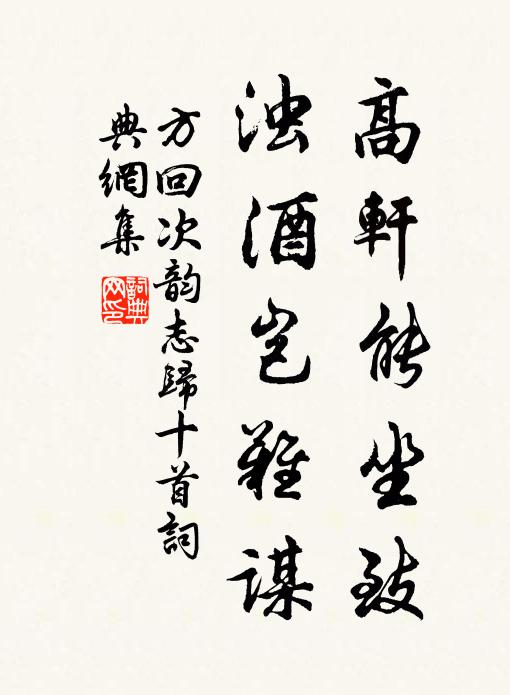 高軒能坐致
浊酒岂難謀
方回次韵志歸十首詞
典網集
詞典网印